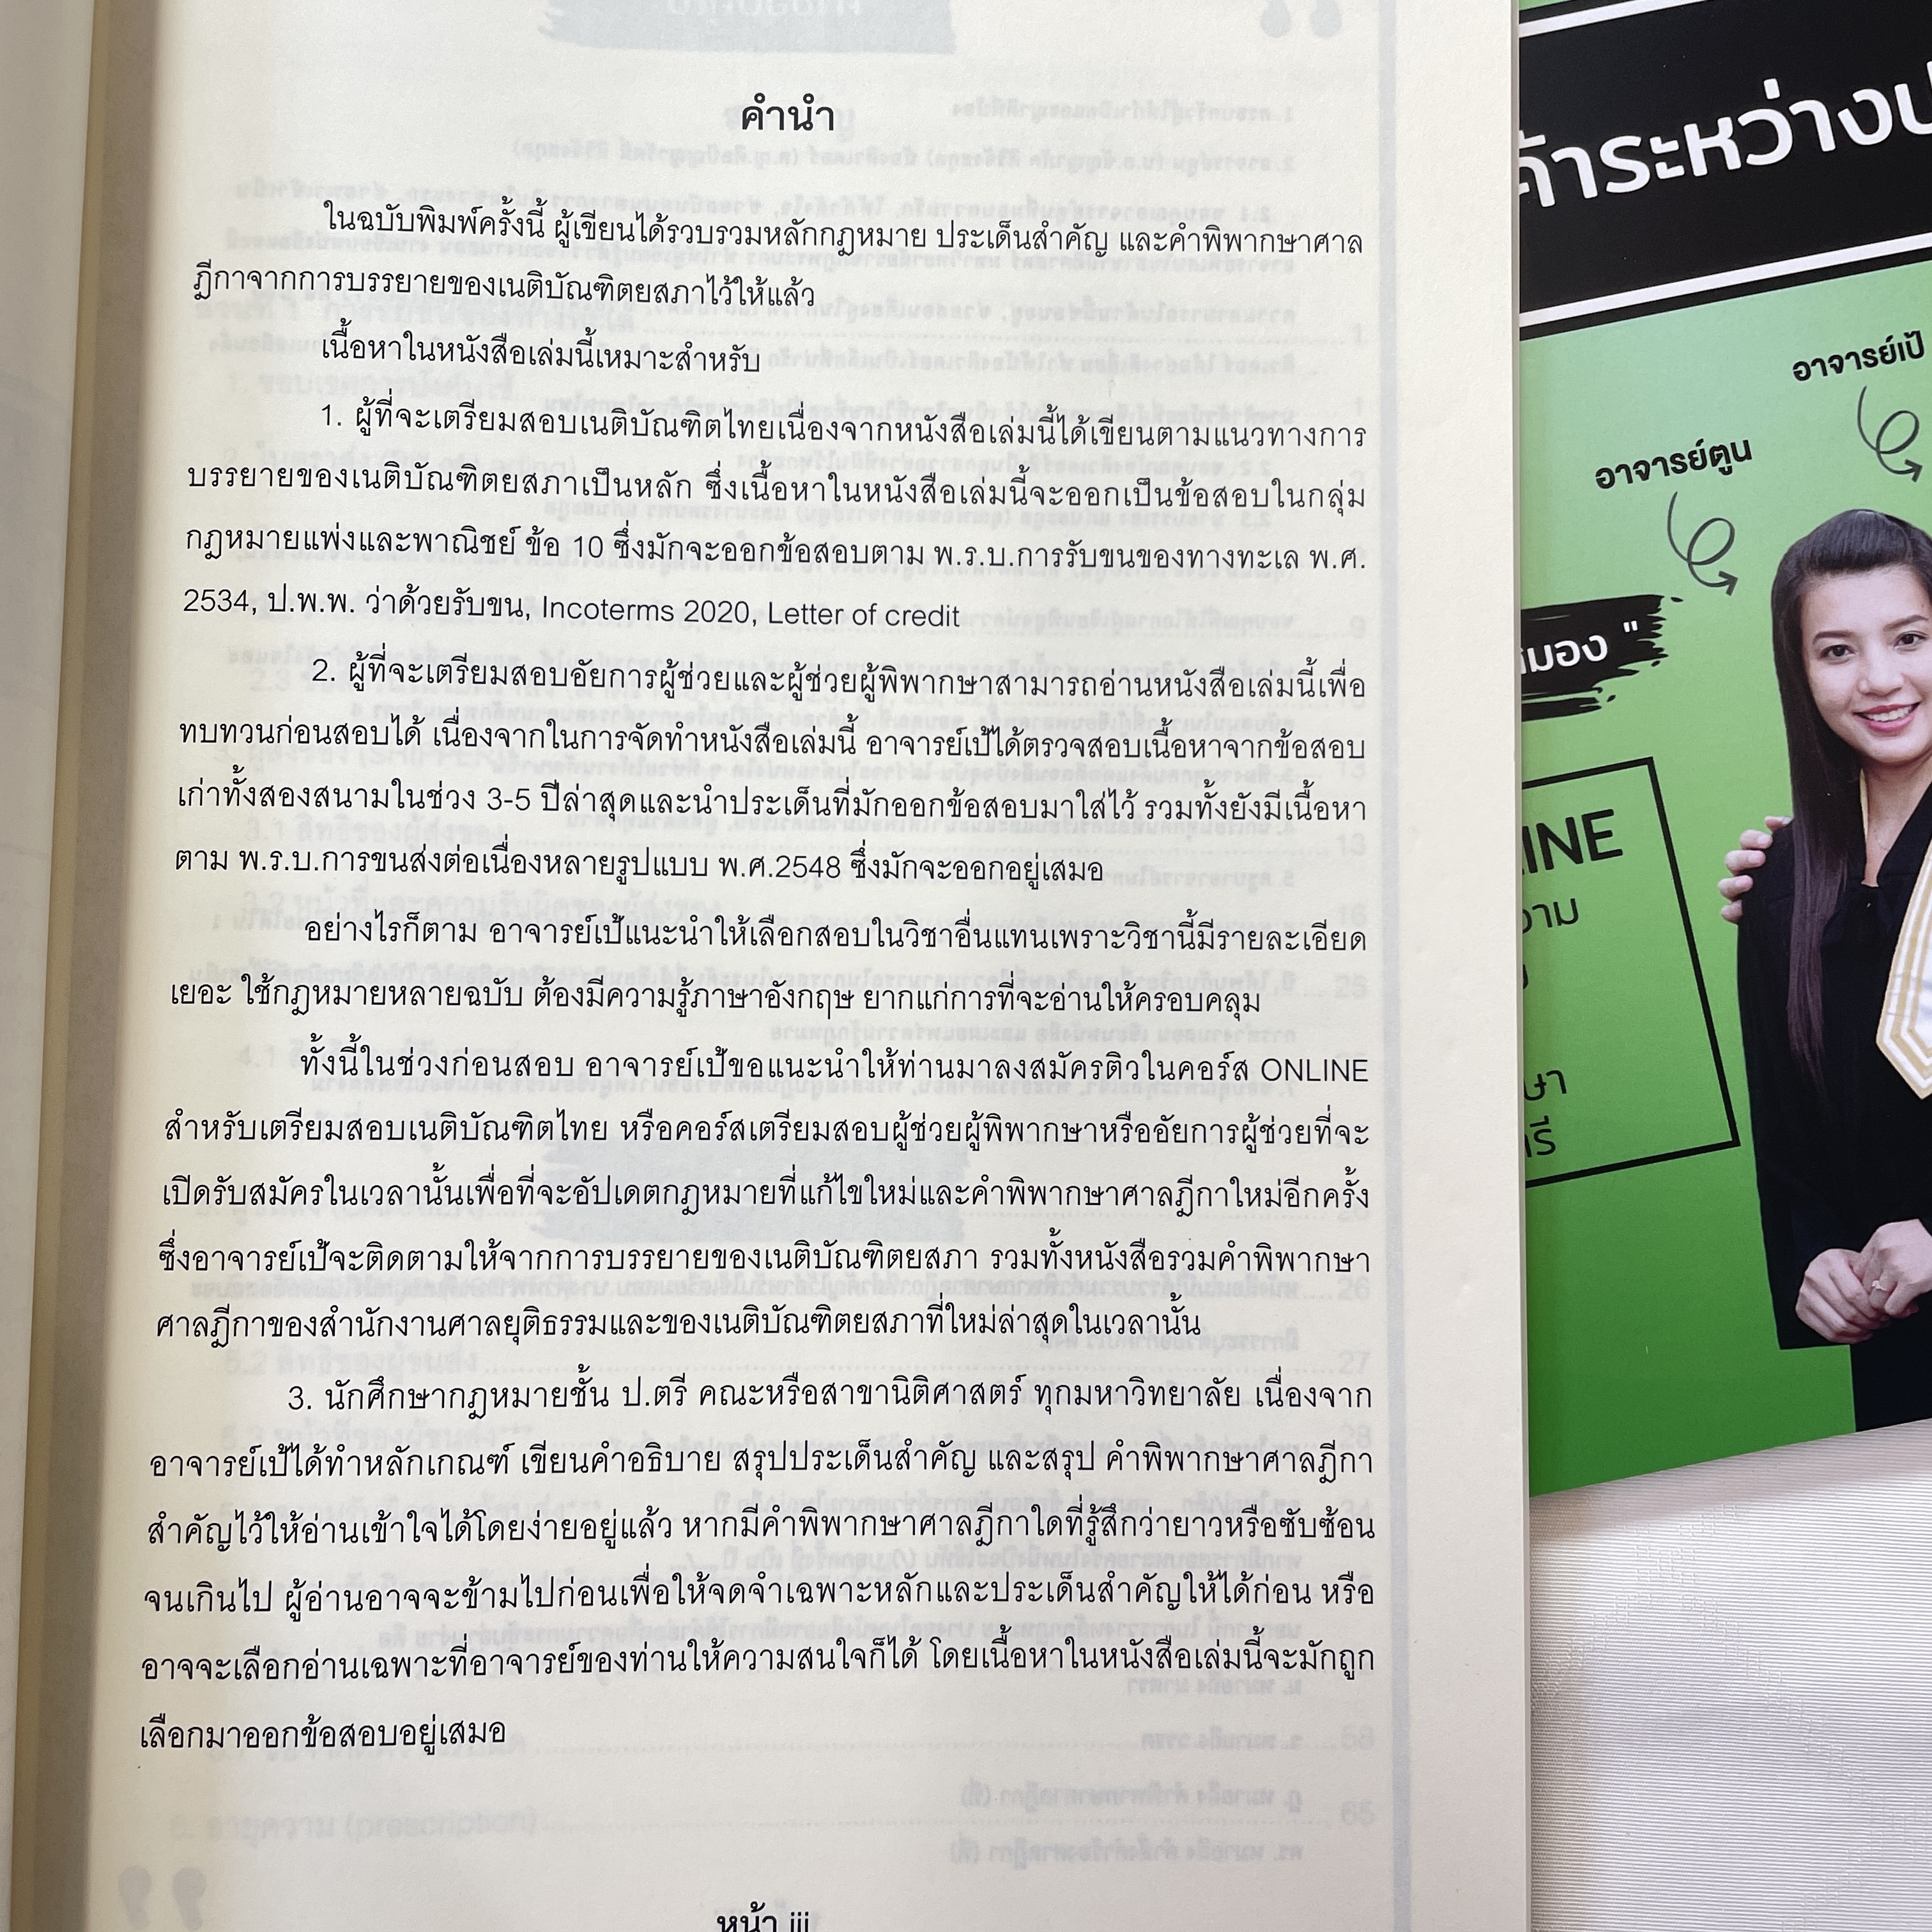 คำนำ
ในฉบับพิมพ์ครั้งนี้ ผู้เขียนได้รวบรวมหลักกฎหมาย ประเด็นสำคัญ และคำพิพากษาศาล
ฎีกาจากการบรรยายของเนติบัณฑิตยสภาไว้ให้แล้ว
เนื้อหาในหนังสือเล่มนี้เหมาะสำหรับ
1. ผู้ที่จะเตรียมสอบเนติบัณฑิตไทยเนื่องจากหนังสือเล่มนี้ได้เขียนตามแนวทางการ
บรรยายของเนติบัณฑิตยสภาเป็นหลัก ซึ่งเนื้อหาในหนังสือเล่มนี้จะออกเป็นข้อสอบในกลุ่ม
กฎหมายแพ่งและพาณิชย์ ข้อ 10 ซึ่งมักจะออกข้อสอบตาม พ.ร.บ.การรับขนของทางทะเล พ.ศ.
2534, ป.พ.พ. ว่าด้วยรับขน, Incoterms 2020, Letter of credit
2. ผู้ที่จะเตรียมสอบอัยการผู้ช่วยและผู้ช่วยผู้พิพากษาสามารถอ่านหนังสือเล่มนี้เพื่อ
ทบทวนก่อนสอบได้ เนื่องจากในการจัดทำหนังสือเล่มนี้ อาจารย์เป้ได้ตรวจสอบเนื้อหาจากข้อสอบ
เก่าทั้งสองสนามในช่วง 3-5 ปีล่าสุดและนำประเด็นที่มักออกข้อสอบมาใส่ไว้ รวมทั้งยังมีเนื้อหา
ตาม พ.ร.บ.การขนส่งต่อเนื่องหลายรูปแบบ พ.ศ.2548 ซึ่งมักจะออกอยู่เสมอ
อย่างไรก็ตาม อาจารย์เป้แนะนำให้เลือกสอบในวิชาอื่นแทนเพราะวิชานี้มีรายละเอียด
เยอะ ใช้กฎหมายหลายฉบับ ต้องมีความรู้ภาษาอังกฤษ ยากแก่การที่จะอ่านให้ครอบคลุม
ทั้งนี้ในช่วงก่อนสอบ อาจารย์เป้ขอแนะนำให้ท่านมาลงสมัครติวในคอร์ส ONLINE
สำหรับเตรียมสอบเนติบัณฑิตไทย หรือคอร์สเตรียมสอบผู้ช่วยผู้พิพากษาหรืออัยการผู้ช่วยที่จะ
เปิดรับสมัครในเวลานั้นเพื่อที่จะอัปเดตกฎหมายที่แก้ไขใหม่และคำพิพากษาศาลฎีกาใหม่อีกครั้ง
ซึ่งอาจารย์เป้จะติดตามให้จากการบรรยายของเนติบัณฑิตยสภา รวมทั้งหนังสือรวมคำพิพากษา
ศาลฎีกาของสำนักงานศาลยุติธรรมและของเนติบัณฑิตยสภาที่ใหม่ล่าสุดในเวลานั้น
3. นักศึกษากฎหมายชั้น ป.ตรี คณะหรือสาขานิติศาสตร์ ทุกมหาวิทยาลัย เนื่องจาก
อาจารย์เป้ได้ทำหลักเกณฑ์ เขียนคำอธิบาย สรุปประเด็นสำคัญ และสรุป คำพิพากษาศาลฎีกา
สำคัญไว้ให้อ่านเข้าใจได้โดยง่ายอยู่แล้ว หากมีคำพิพากษาศาลฎีกาใดที่รู้สึกว่ายาวหรือซับซ้อน
จนเกินไป ผู้อ่านอาจจะข้ามไปก่อนเพื่อให้จดจำเฉพาะหลักและประเด็นสำคัญให้ได้ก่อน หรือ
อาจจะเลือกอ่านเฉพาะที่อาจารย์ของท่านให้ความสนใจก็ได้ โดยเนื้อหาในหนังสือเล่มนี้จะมักถูก
เลือกมาออกข้อสอบอยู่เสมอ
หน้า iii
ค้าระหว่างป
อาจารย์เป้
อาจารย์ตูน